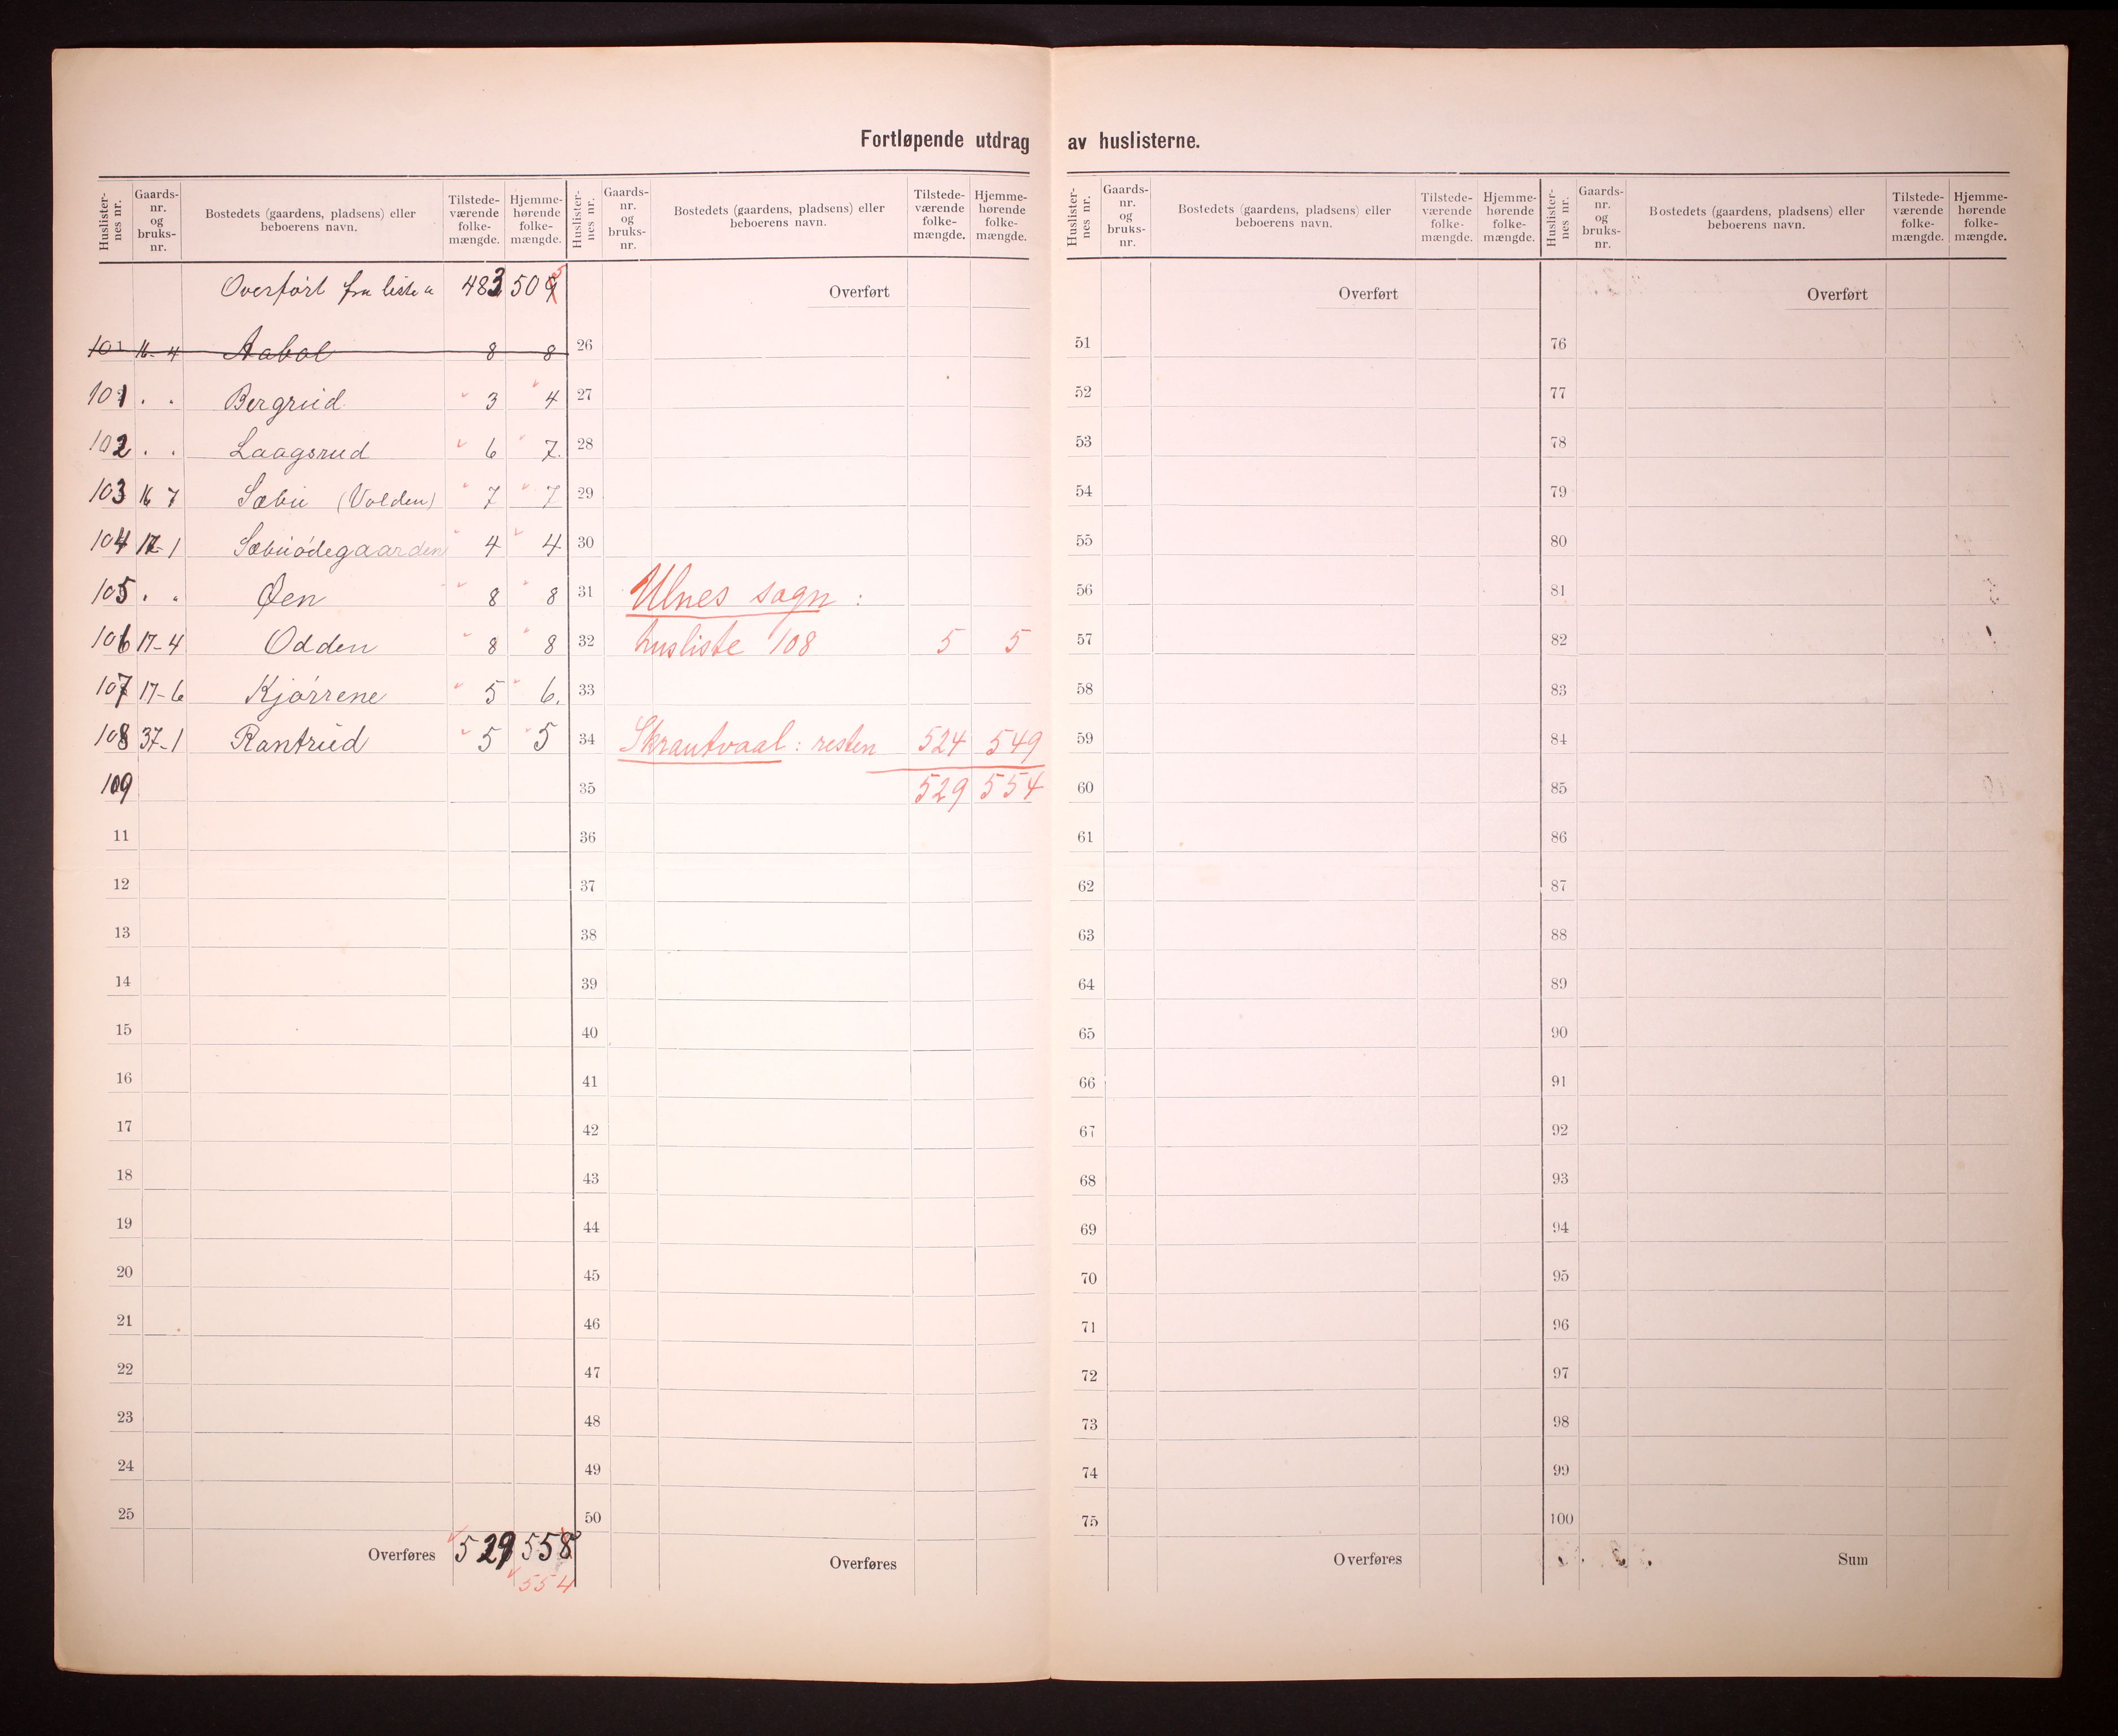 Fortløpende utdrag av huslisterne.
Huslister-nes nr. Gaards-nr. og bruks-nr. Bostedets (gaardens, pladsens) eller beboerens navn. Tilstede-værende folke-mængde. Hjemme-hørende folke-mængde.
Overført fra liste a 483 509 5
101 16-4 Aabol 8 8
101 . . Bergrud 3 4
102 . . Laagsrud 6 7.
103 16 7 Sæbu (Volden) 7 7
104 17-1 Sæbuødegaarden 4 4
105 . . Øen 8 8
106 17-4 Odden 8 8
107 17-6 Kjørrene 5 6.
108 37-1 Rantrud 5 5
109
11
12
13
14
15
16
17
18
19
20
21
22
23
24
25
Overføres 529 558
554
Huslister-nes nr. Gaards-nr. og bruks-nr. Bostedets (gaardens, pladsens) eller beboerens navn. Tilstede-værende folke-mængde. Hjemme-hørende folke-mængde.
Overført
26
27
28
29
30
31 Ulnes sogn :
32 husliste 108 5 5
33
34 Skrautvaal : resten 524 549
35 529 554
36
37
38
39
40
41
42
43
44
45
46
47
48
49
50
Overføres
Huslister-nes nr. Gaards-nr. og bruks-nr. Bostedets (gaardens, pladsens) eller beboerens navn. Tilstede-værende folke-mængde. Hjemme-hørende folke-mængde.
Overført
51
52
53
54
55
56
57
58
59
60
61
62
63
64
65
66
67
68
69
70
71
72
73
74
75
Overføres
Huslister-nes nr. Gaards-nr. og bruks-nr. Bostedets (gaardens, pladsens) eller beboerens navn. Tilstede-værende folke-mængde. Hjemme-hørende folke-mængde.
Overført
76
77
78
79
80
81
82
83
84
85
86
87
88
89
90
91
92
93
94
95
96
97
98
99
100
Sum